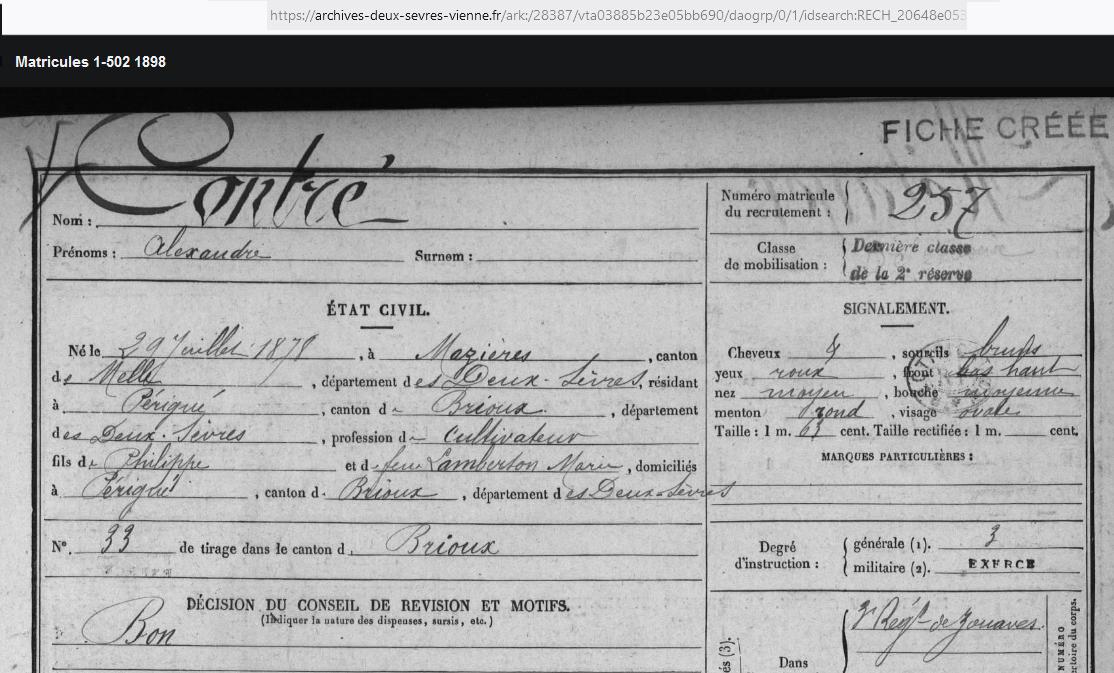 https://archives-deux-sevres-vienne.fr/ark:/28387/vta03885b23e05bb690/daogrp/0/1/idsearch:RECH_20648e053
Matricules 1-502 1898
FICHE CRÉÉE
Nom : Contré
Prénoms : Alexandre Surnom :
Numéro matricule
du recrutement : 257
Classe
de mobilisation :
Dernière classe
de la 2e réserve
ÉTAT CIVIL.
Né le 29 Juillet 1878, à Mazières, canton
de Melle, département des Deux-Sèvres, résidant
à Périgné, canton de Brioux, département
des Deux-Sèvres, profession de Cultivateur
fils de Philippe et de feue Lamberton Marie, domiciliés
à Périgné, canton de Brioux, département des Deux-Sèvres
SIGNALEMENT.
Cheveux, sourcils bruns
yeux roux, front bas haut
nez moyen, bouche moyenne
menton rond, visage ovale
Taille : 1 m. 63 cent. Taille rectifiée : 1 m. cent.
MARQUES PARTICULIÈRES :
N°. 33 de tirage dans le canton d Brioux
Degré
d'instruction :
générale (1). 3
militaire (2). EXERCE
DÉCISION DU CONSEIL DE REVISION ET MOTIFS.
(Indiquer la nature des dispenses, sursis, etc.)
Bon
Dans
Régt de Zouaves.
és (3).
NUMÉRO
ertoire du corps.